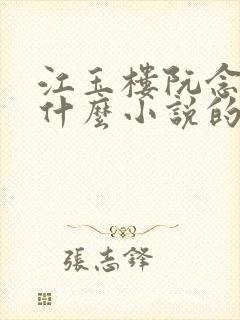 江玉樓阮念
什麼小說的
張志鋒